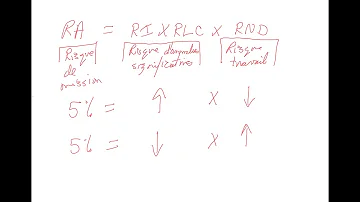 RA = RI X RLC X RND
Risque de mission
Risque d'anomalies significatives
Risque travail
5% = ↑ X ↓
5% = ↓ X ↑